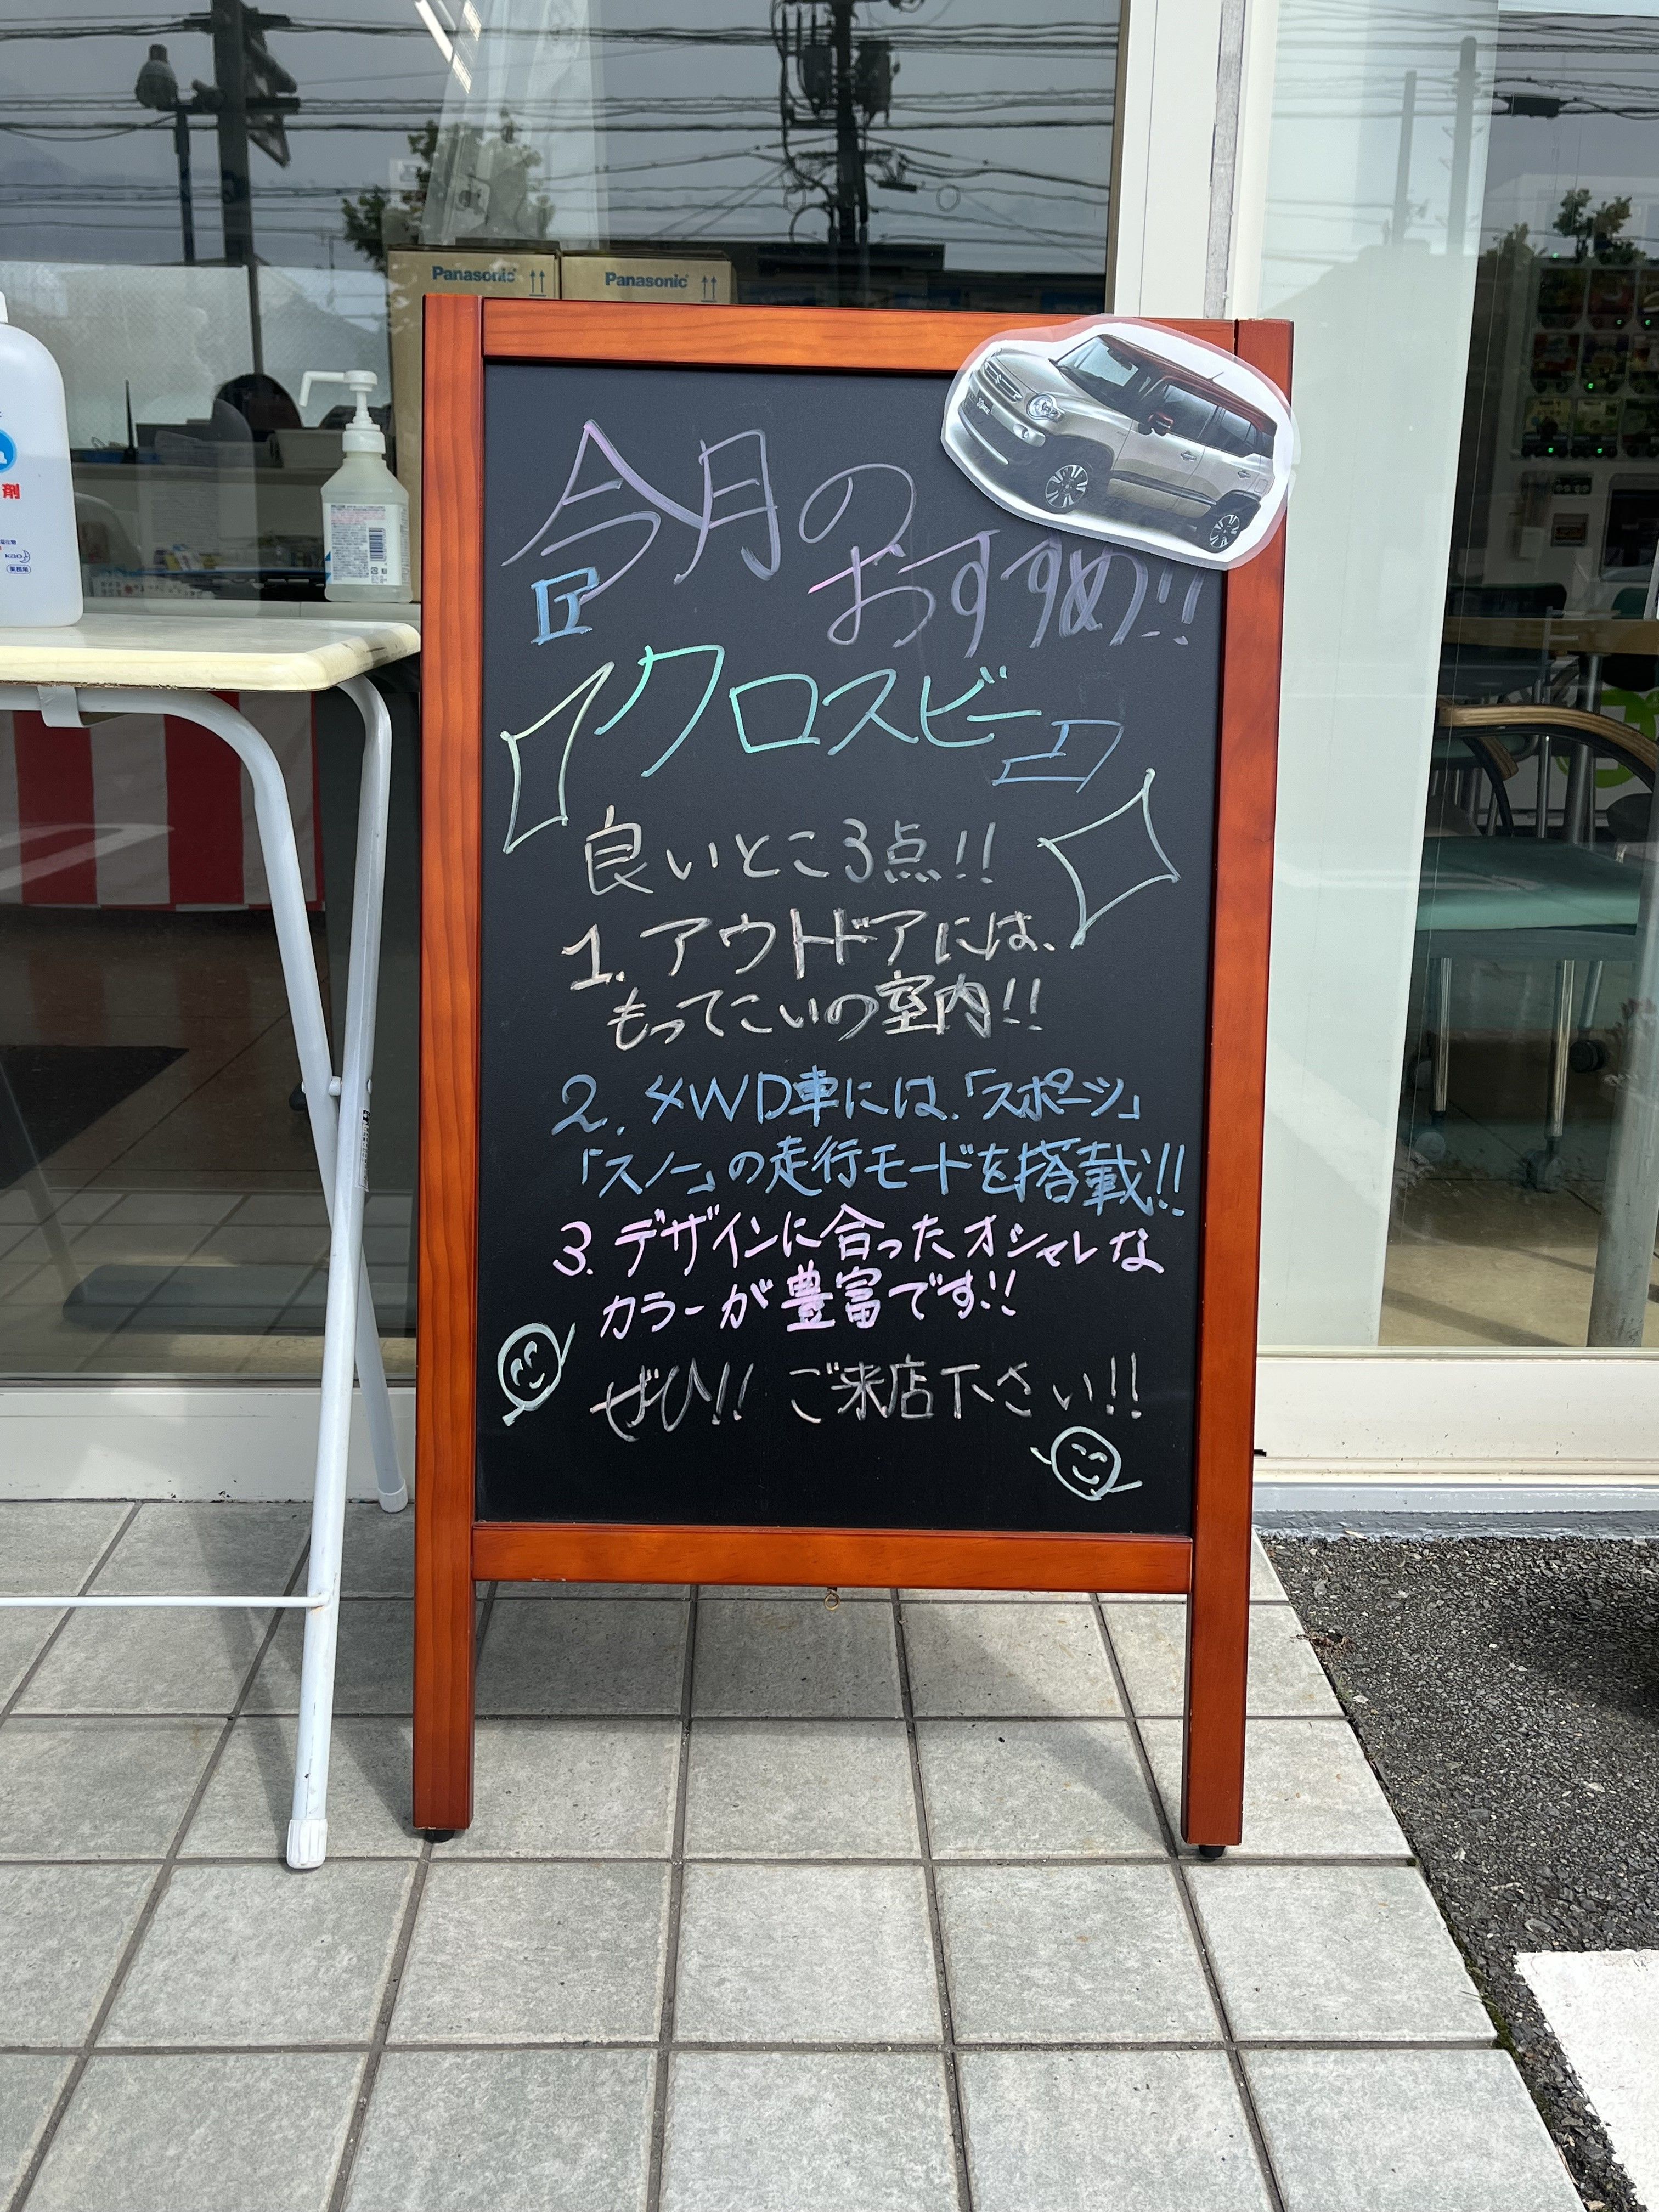 Panasonic
Panasonic
剤
今月の
おすすめ!!
『クロスビー』
良いところ3点!!
1. アウトドアには、
もってこいの室内!!
2. 4WD車には、「スポーツ」
「スノー」の走行モードを搭載!!
3. デザインに合ったオシャレな
カラーが豊富です!!
ぜひ!! ご来店下さい!!